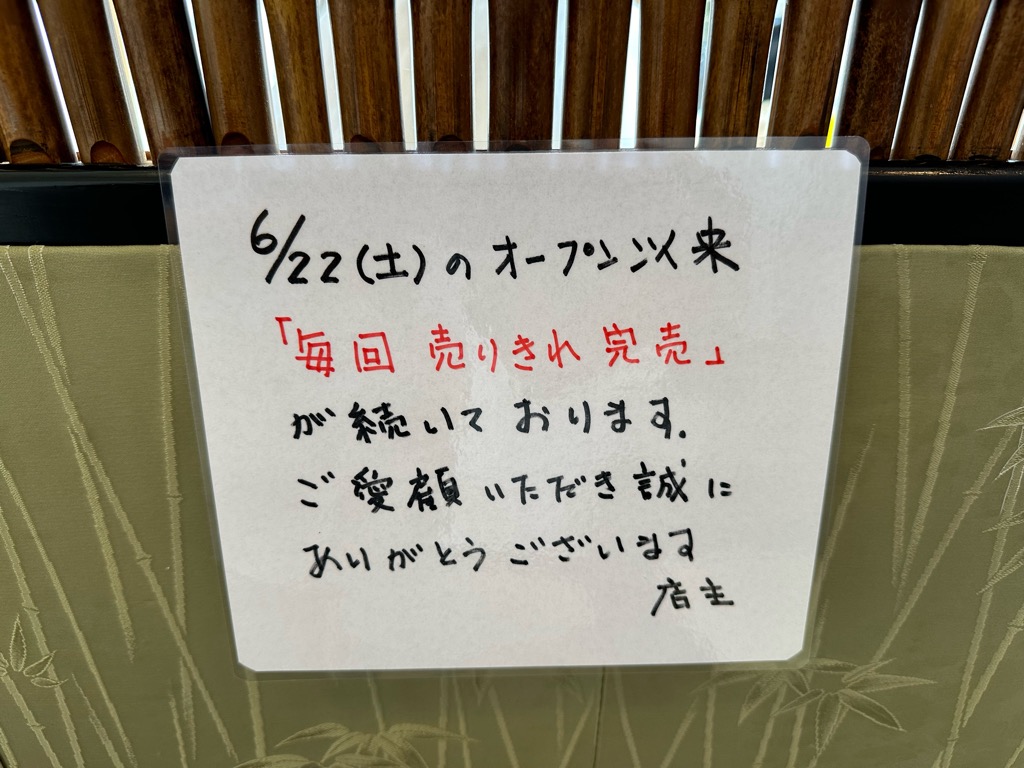 6/22(土)のオープン以来
「毎回 売りきれ 完売」
が続いて おります.
ご愛顧いただき誠に
ありがとうございます
店主